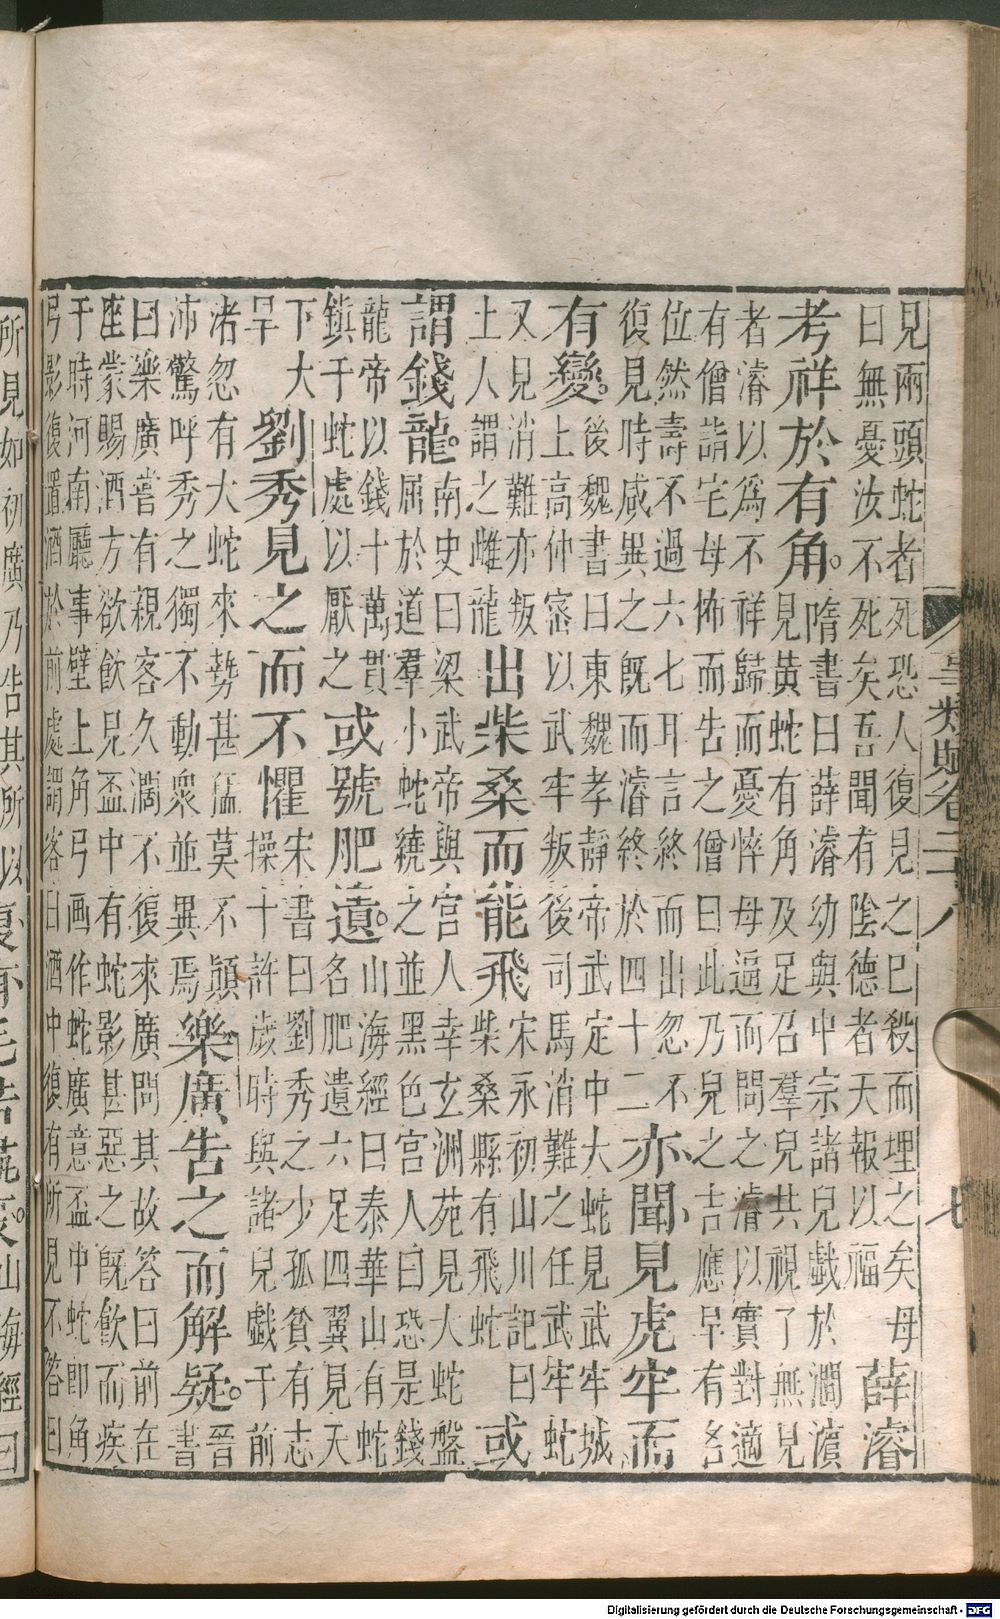 事類賦卷二十八 七
見兩頭蛇者死恐人復見之巳殺而埋之矣母
曰無憂汝不死矣吾聞有陰德者天報以福
薛濬
考祥於有角。
隋書曰薛濬幼與中宗諸兒戲於澗濵
見黃蛇有角及足召羣兒共視了無見
者濬以爲不祥歸而憂悴母逼而問之濬以實對適
有僧詣宅母怖而告之僧曰此乃兒之吉應早有名
位然壽不過六七耳言終而出忽不
復見時咸異之既而濬終於四十二
亦聞見虎牢而
有變。
後魏書曰東魏孝靜帝武定中大蛇見武牢城
上高仲宻以武牢叛後司馬消難之任武牢蛇
又見消難亦叛
士人謂之雌龍
出柴桑而能飛
宋永初山川記曰
柴桑縣有飛蛇
或
謂錢龍。
南史曰梁武帝與宮人幸玄洲苑見大蛇盤
屈於道羣小蛇繞之並黑色宮人曰恐是錢
龍帝以錢十萬貫
鎮于蛇處以厭之
或號肥遺。
山海經曰泰華山有蛇
名肥遺六足四翼見天
下大
旱
劉秀見之而不懼
宋書曰劉秀之少孤貧有志
操十許歲時與諸兒戲于前
渚忽有大蛇來勢甚猛莫不顛
沛驚呼秀之獨不動衆並異焉
樂廣告之而解疑。
晉
書
曰樂廣嘗有親客久濶不復來廣問其故答曰前在
座蒙賜酒方欲飲見盃中有蛇影甚惡之既飲而疾
于時河南廳事壁上角弓画作蛇廣意盃中蛇即角
弓影復置酒於前處謂客曰酒中復有所見不答曰
所見如初廣乃告其所以
山海經曰
Digitalisierung gefördert durch die Deutsche Forschungsgemeinschaft - DFG